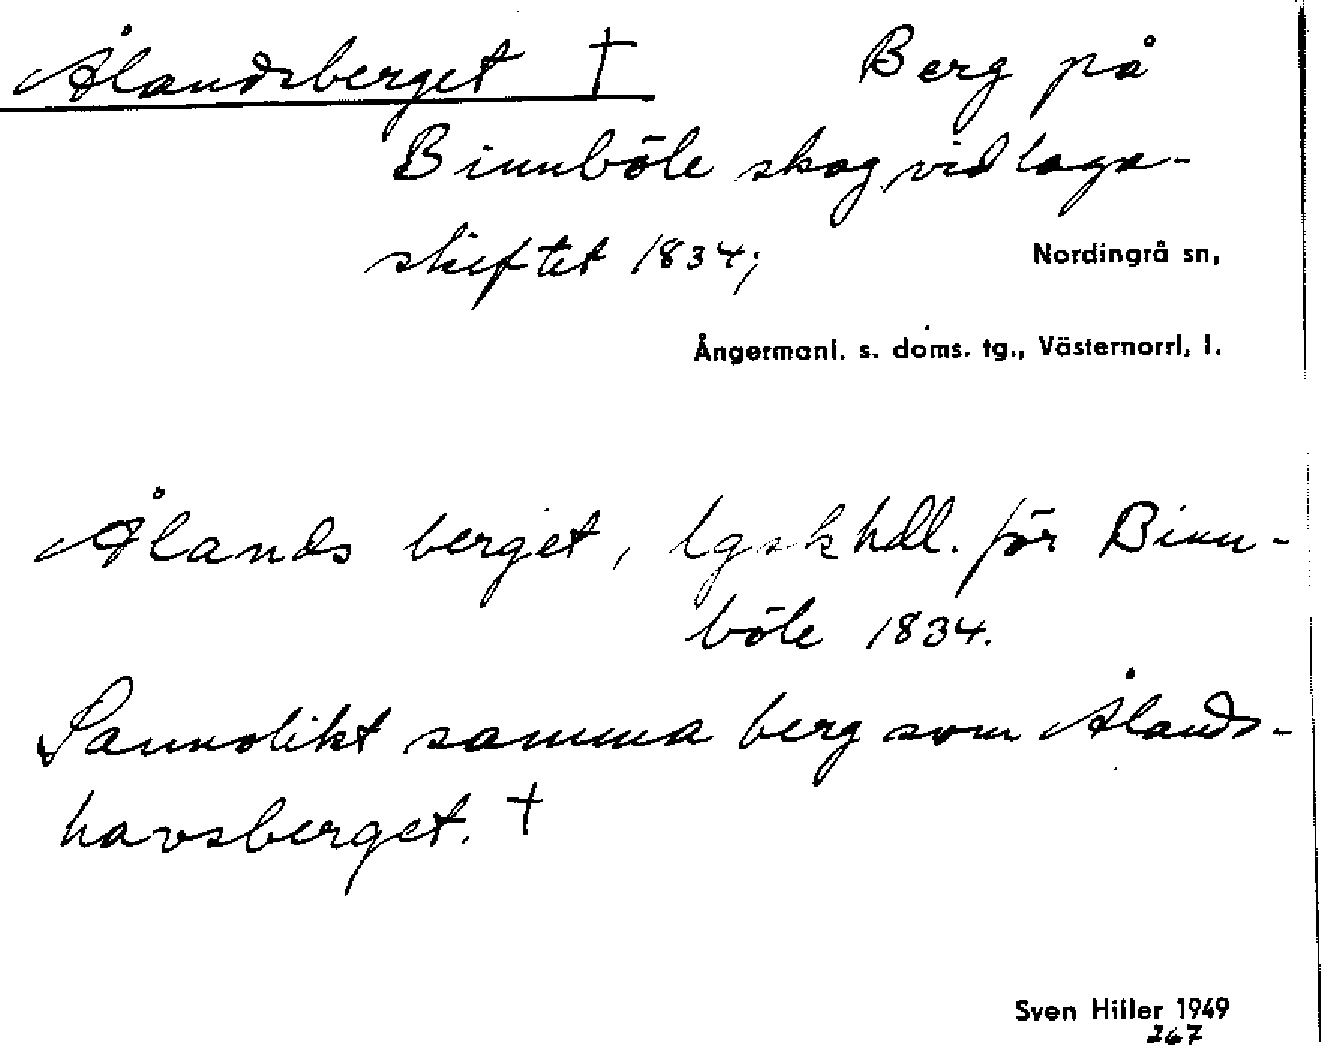 Ålandsberget † Berg på
Binnböle skog vid laga-
skiftet 1834;
Nordingrå sn,
Ångermanl. s. doms. tg., Västernorrl. l.
Ålands berget, lgskhdl. för Binn-
böle 1834.
Sannolikt samma berg som Ålands-
havsberget. †
Sven Hiller 1949
267